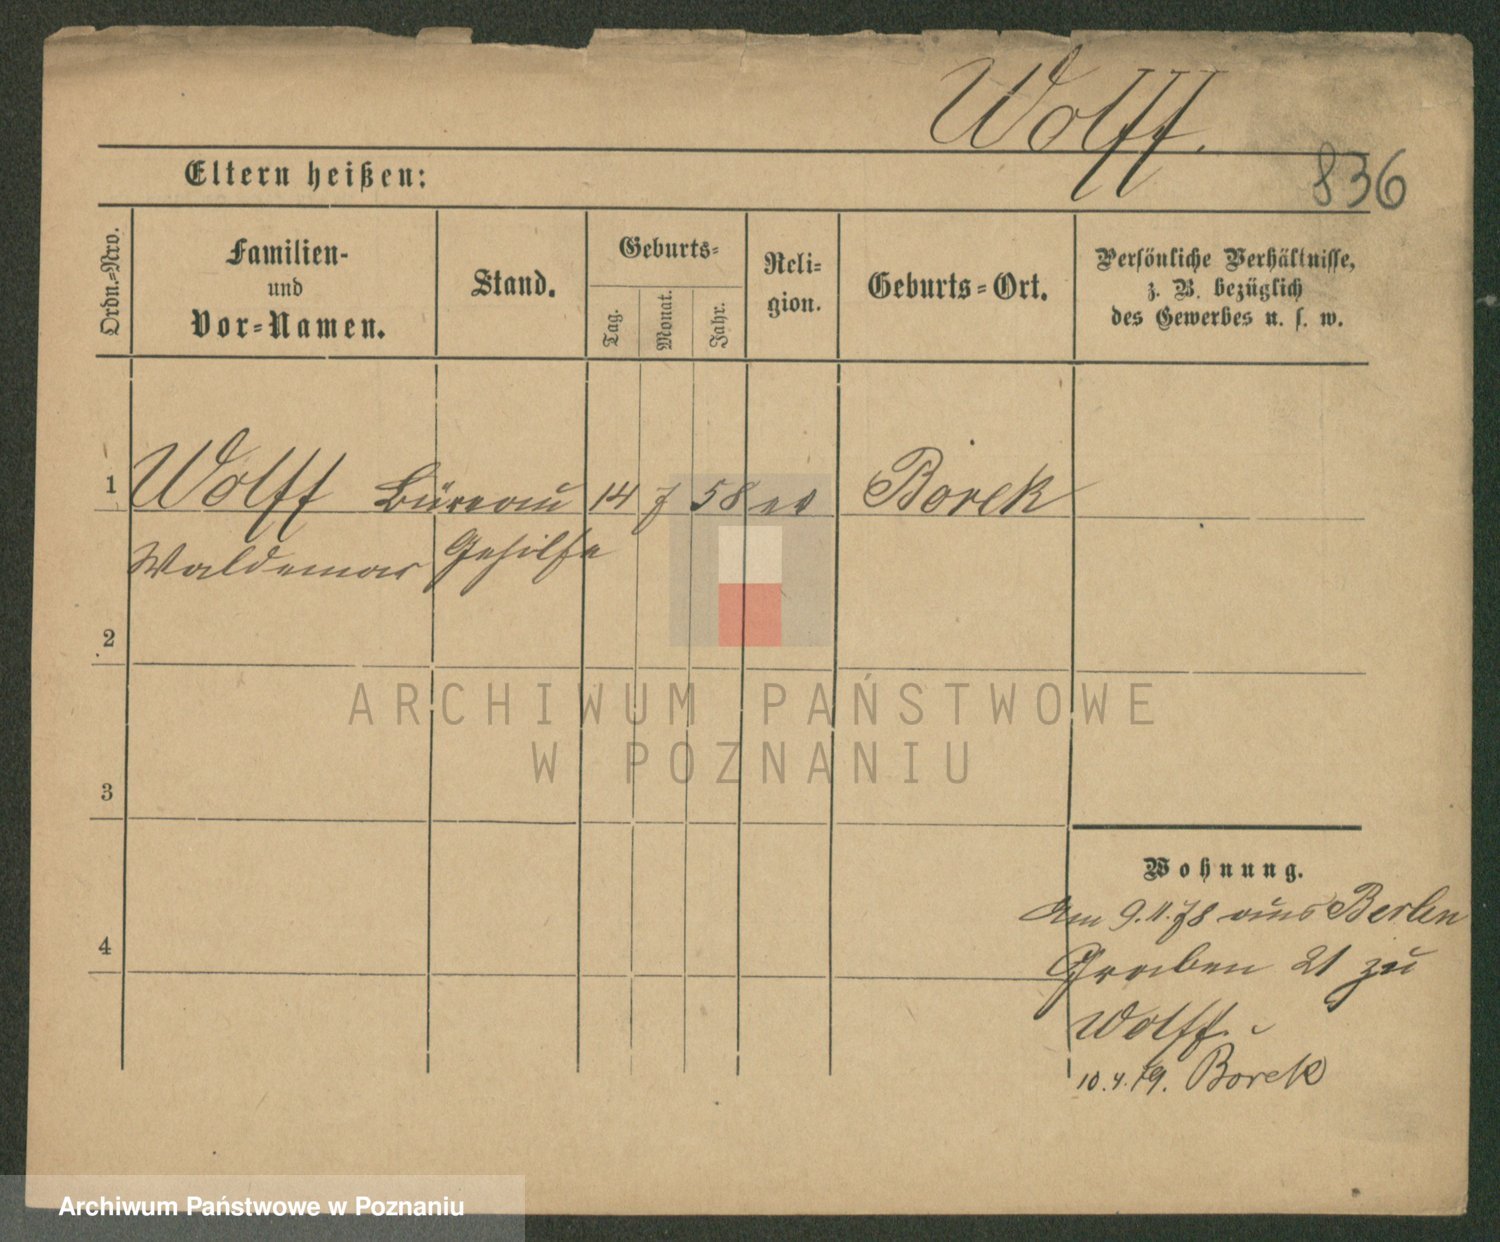 Wolff.
836
Eltern heißen:
Ordn.-Nro.
Familien-
und
Vor-Namen.
Stand.
Geburts-
Tag.
Monat.
Jahr.
Reli-
gion.
Geburts-Ort.
Persönliche Verhältnisse,
z. B. bezüglich
des Gewerbes u. s. w.
1 Wolff Büreau 14 7 58 ev Borek
Waldemar Gehilfe
2
3
4
Wohnung.
Am 9.11.78 aus Berlin
Graben 21 zu
Wolff.
10.4.79. Borek
ARCHIWUM PAŃSTWOWE
W POZNANIU
Archiwum Państwowe w Poznaniu